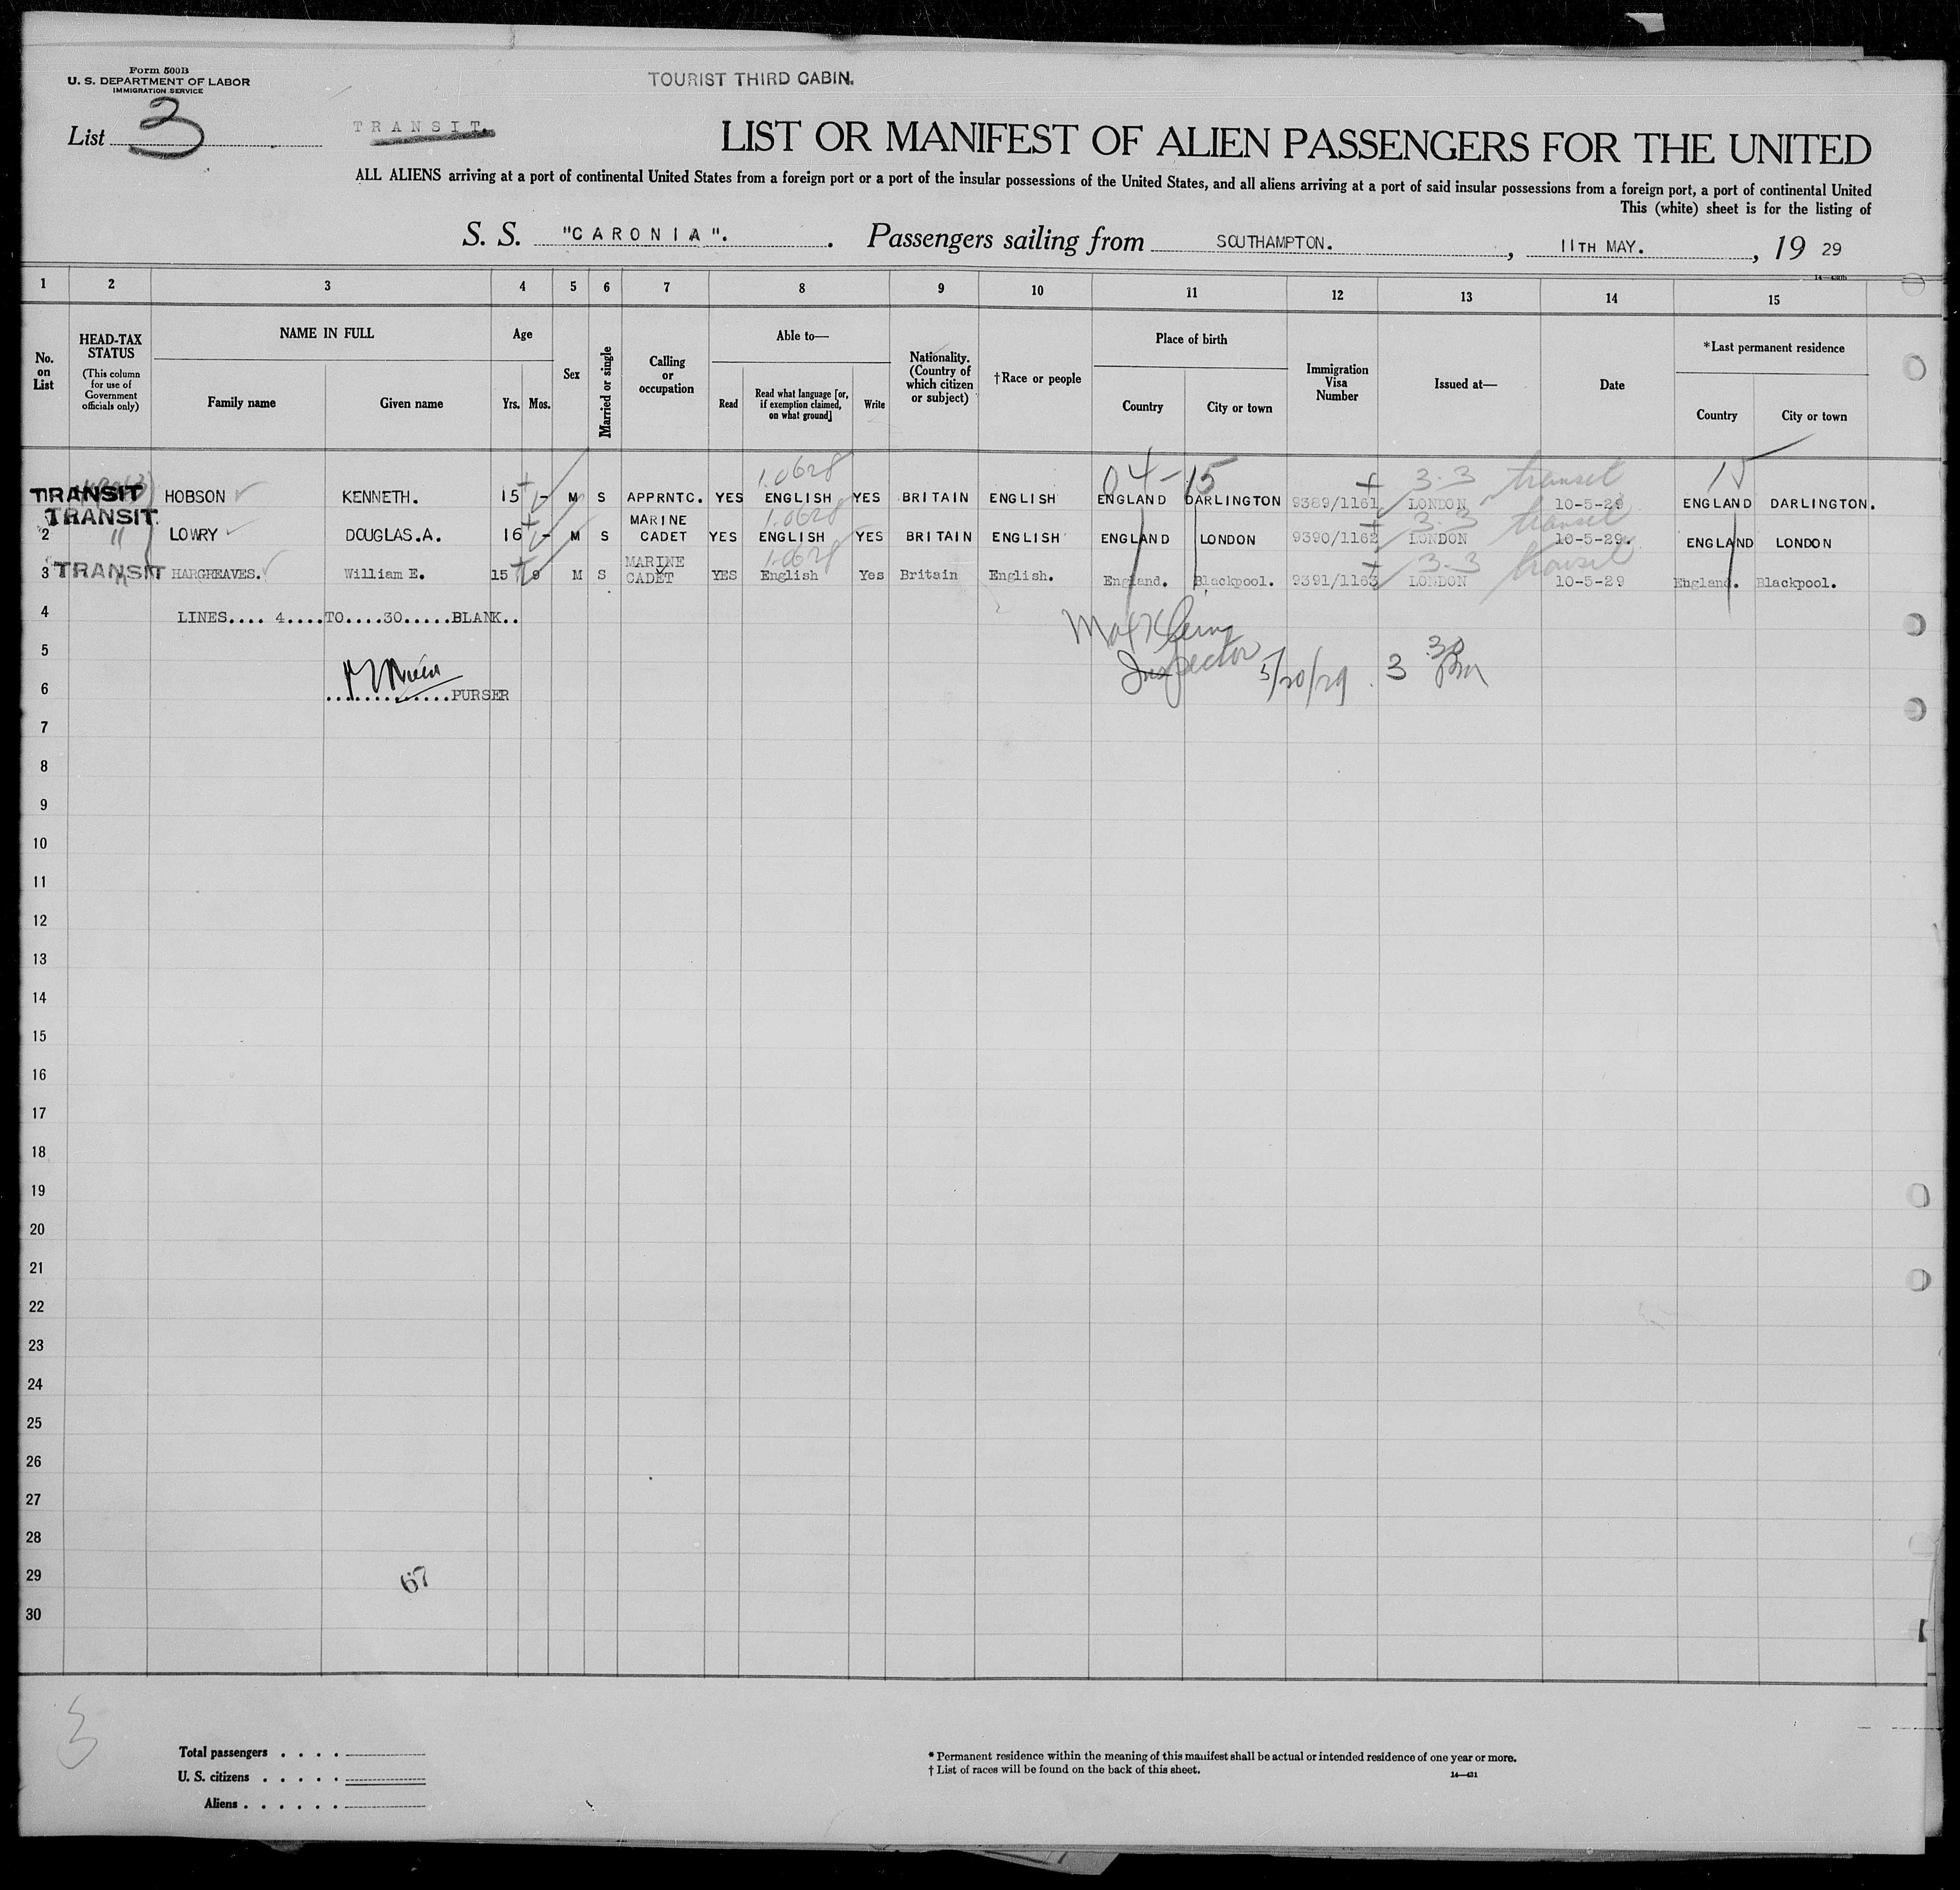 Form 500B
U. S. DEPARTMENT OF LABOR
IMMIGRATION SERVICE
TOURIST THIRD CABIN.
List 3
TRANSIT.
LIST OR MANIFEST OF ALIEN PASSENGERS FOR THE UNITED
ALL ALIENS arriving at a port of continental United States from a foreign port or a port of the insular possessions of the United States, and all aliens arriving at a port of said insular possessions from a foreign port, a port of continental United
This (white) sheet is for the listing of
S. S. "CARONIA". Passengers sailing from SOUTHAMPTON. , 11TH MAY. , 19 29
1 2 3 4 5 6 7 8 9 10 11 12 13 14 15
No. on List
HEAD-TAX STATUS (This column for use of Government officials only)
NAME IN FULL
Family name Given name
Age
Yrs. Mos.
Sex
Married or single
Calling or occupation
Able to—
Read
Read what language [or, if exemption claimed, on what ground]
Write
Nationality. (Country of which citizen or subject)
†Race or people
Place of birth
Country City or town
Immigration Visa Number
Issued at—
Date
*Last permanent residence
Country City or town
1.0628 04-15 3-3 transit 15
TRANSIT HOBSON KENNETH. 15 - M S APPRNTC. YES ENGLISH YES BRITAIN ENGLISH ENGLAND DARLINGTON 9389/1161 LONDON 10-5-29 ENGLAND DARLINGTON.
TRANSIT 1.0628 3-3 transit
2 " LOWRY DOUGLAS.A. 16 - M S MARINE CADET YES ENGLISH YES BRITAIN ENGLISH ENGLAND LONDON 9390/1162 LONDON 10-5-29. ENGLAND LONDON
1.0628 3-3 transit
3 TRANSIT HARGREAVES. William E. 15 9 M S MARINE CADET YES English Yes Britain English. England. Blackpool. 9391/1163 LONDON 10-5-29 England. Blackpool.
4 LINES.... 4....TO....30.....BLANK..
5 Inspector 5/20/29 3 30 pm
6 ..............PURSER
7
8
9
10
11
12
13
14
15
16
17
18
19
20
21
22
23
24
25
26
27
28
29 67
30
3
Total passengers . . . .
U. S. citizens . . . . .
Aliens . . . . . .
* Permanent residence within the meaning of this manifest shall be actual or intended residence of one year or more.
† List of races will be found on the back of this sheet.
14—431